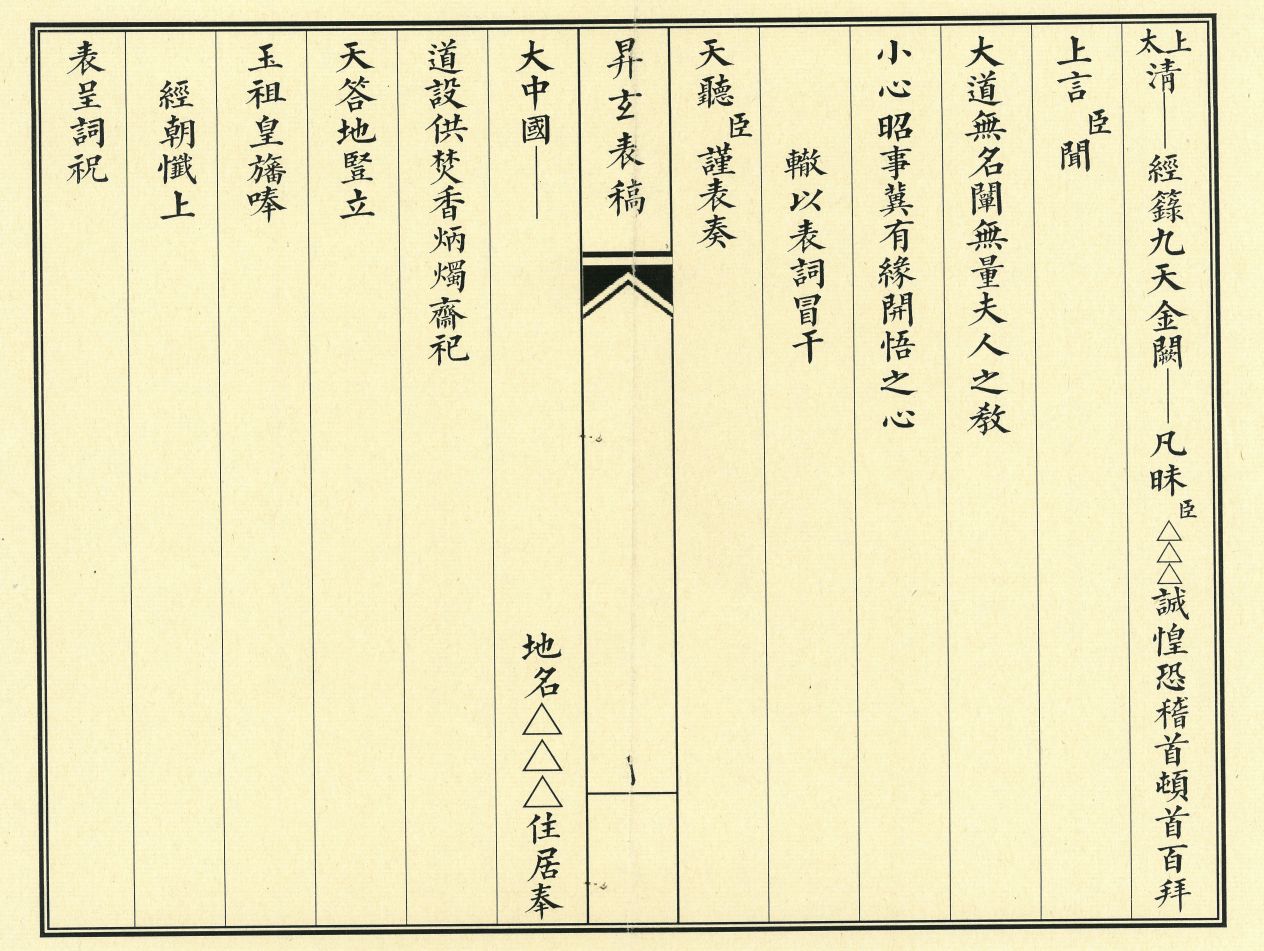 太上清——經籙九天金闕——凡昧臣△△△誠惶恐稽首頓首百拜
上言臣聞
大道無名闡無量夫人之教
小心昭事冀有緣開悟之心
轍以表詞冒干
天聽臣謹表奏
昇玄表稿
一
大中國——地名△△△住居奉
道設供焚香炳燭齋祀
天答地豎立
玉祖皇旛唪
經朝懺上
表呈詞祝